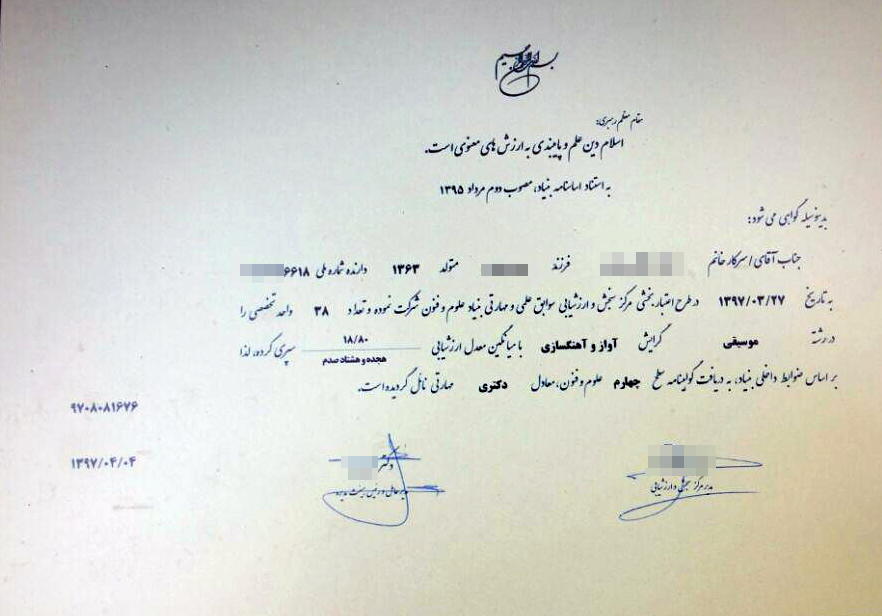 بسم الله الرحمن الرحیم
مقام معظم رهبری:
اسلام دین علم و پایبندی به ارزش های معنوی است.
به استناد اساسنامه بنیاد، مصوب دوم مرداد ۱۳۹۵
بدینوسیله گواهی می شود:
جناب آقای / سرکار خانم فرزند متولد ۱۳۶۳ دارنده شماره ملی ۶۶۱۸
به تاریخ ۱۳۹۷/۰۳/۲۷ در طرح اعتبار بخشی مرکز سنجش و ارزشیابی سوابق علمی و مهارتی بنیاد علوم و فنون شرکت نموده و تعداد ۳۸ واحد تخصصی را
در رشته موسیقی گرایش آواز و آهنگسازی با میانگین معدل ارزشیابی ۱۸/۸۰ هجده و هشتاد صدم سپری کرده، لذا
بر اساس ضوابط داخلی بنیاد، به دریافت گواهینامه سطح چهارم علوم و فنون، معادل دکتری مهارتی نائل گردیده است.
۹۷۰۸۰۸۱۶۷۶
۱۳۹۷/۰۴/۰۴
دکتر
مدیر عامل و رئیس هیئت مدیره
مدیر مرکز سنجش و ارزشیابی